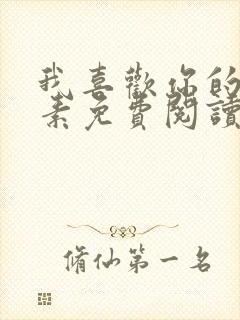 我喜歡你的
素免費閱讀
脩仙第一名